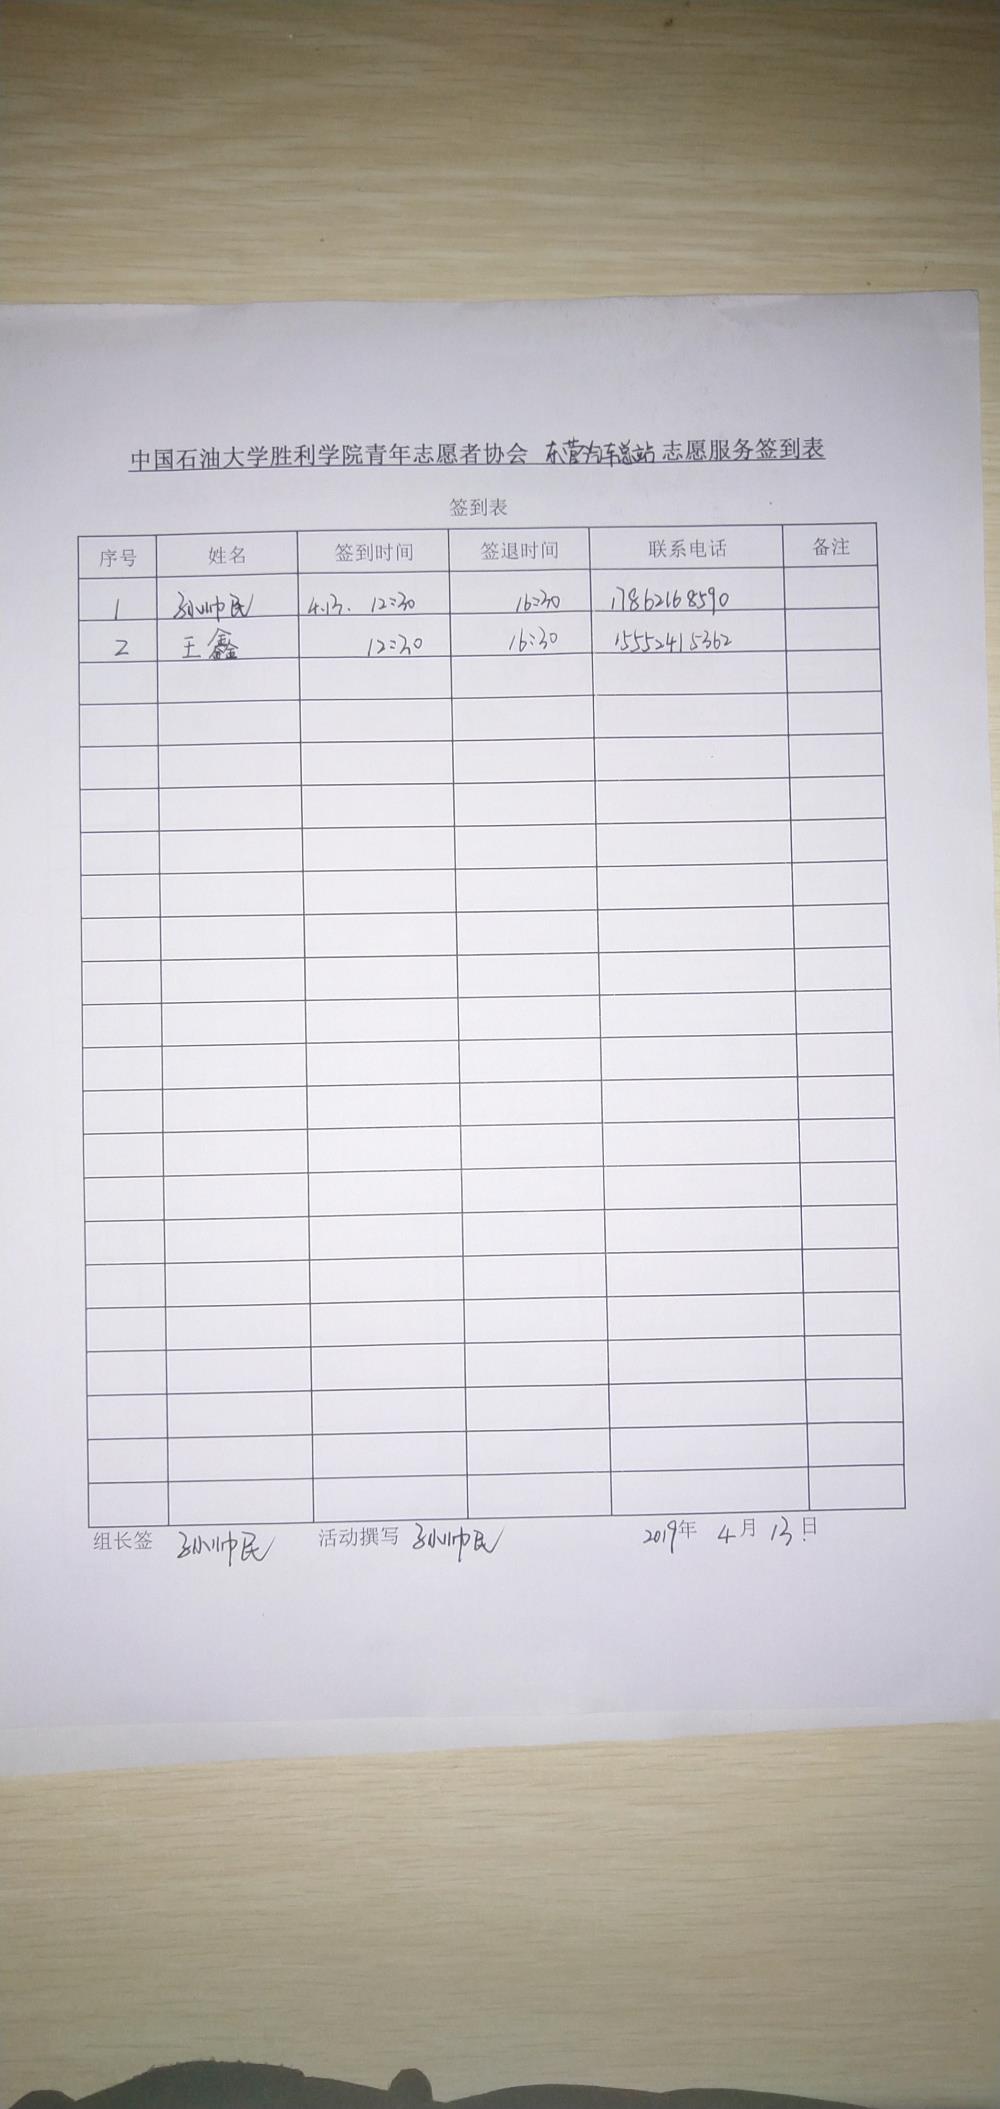 中国石油大学胜利学院青年志愿者协会 东营汽车总站 志愿服务签到表
签到表
序号 姓名 签到时间 签退时间 联系电话 备注
1 孙帅民 4.13. 12:30 16:30 17862168590
2 王鑫 12:30 16:30 15552415362
组长签 孙帅民 活动撰写 孙帅民 2019年 4月13日